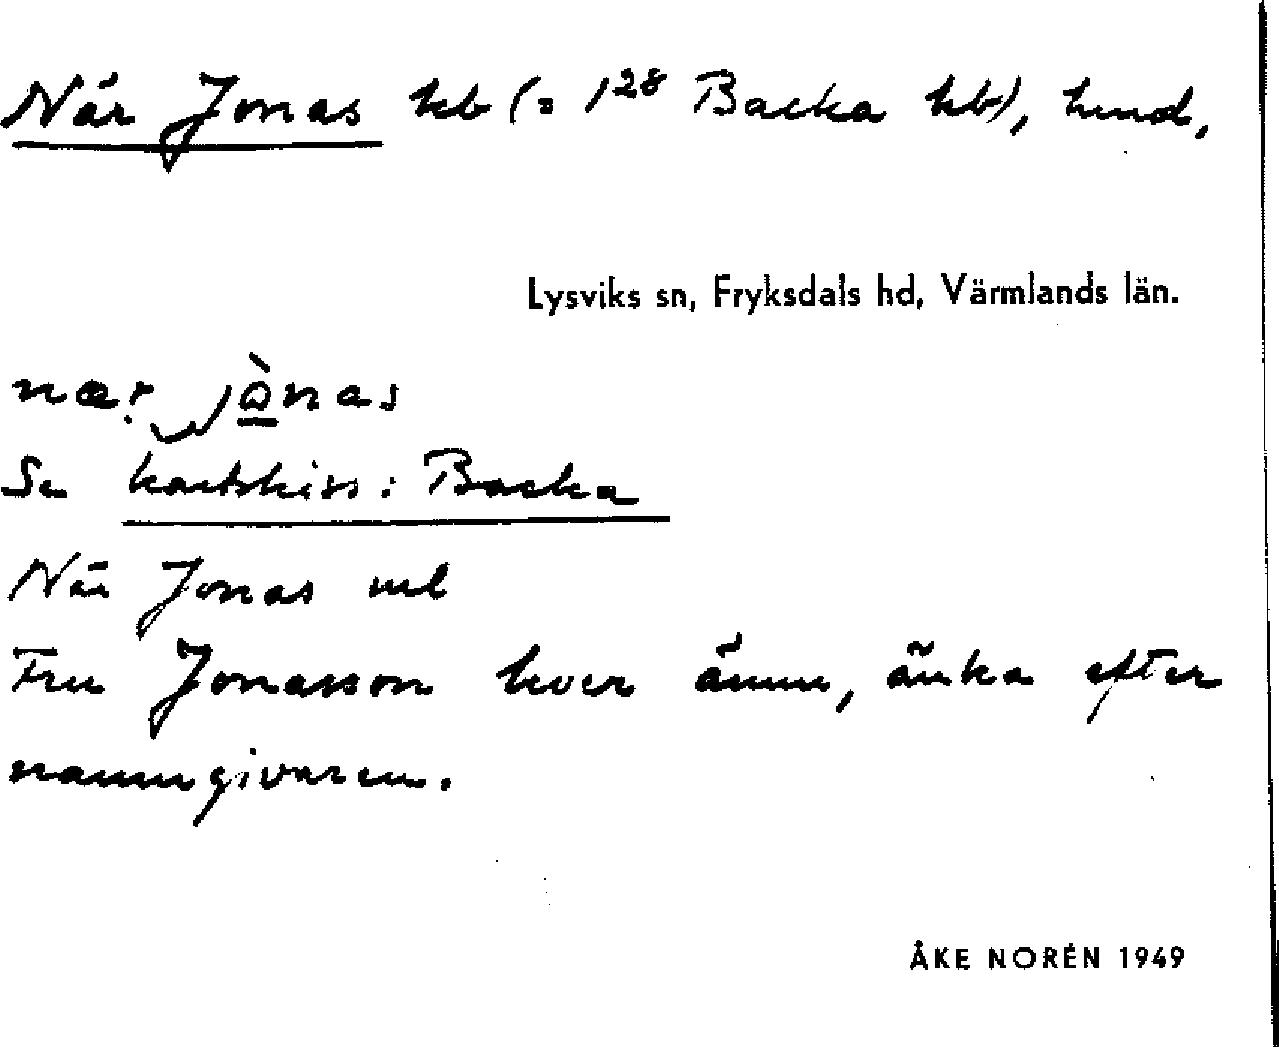 När Jonas hb (= 1²⁸ Backa hb), hmd,
Lysviks sn, Fryksdals hd, Värmlands län.
nær jònas
Se kartskiss: Backa
När Jonas ml
Fru Jonasson lever ännu, änka efter
namngivaren.
ÅKE NORÉN 1949